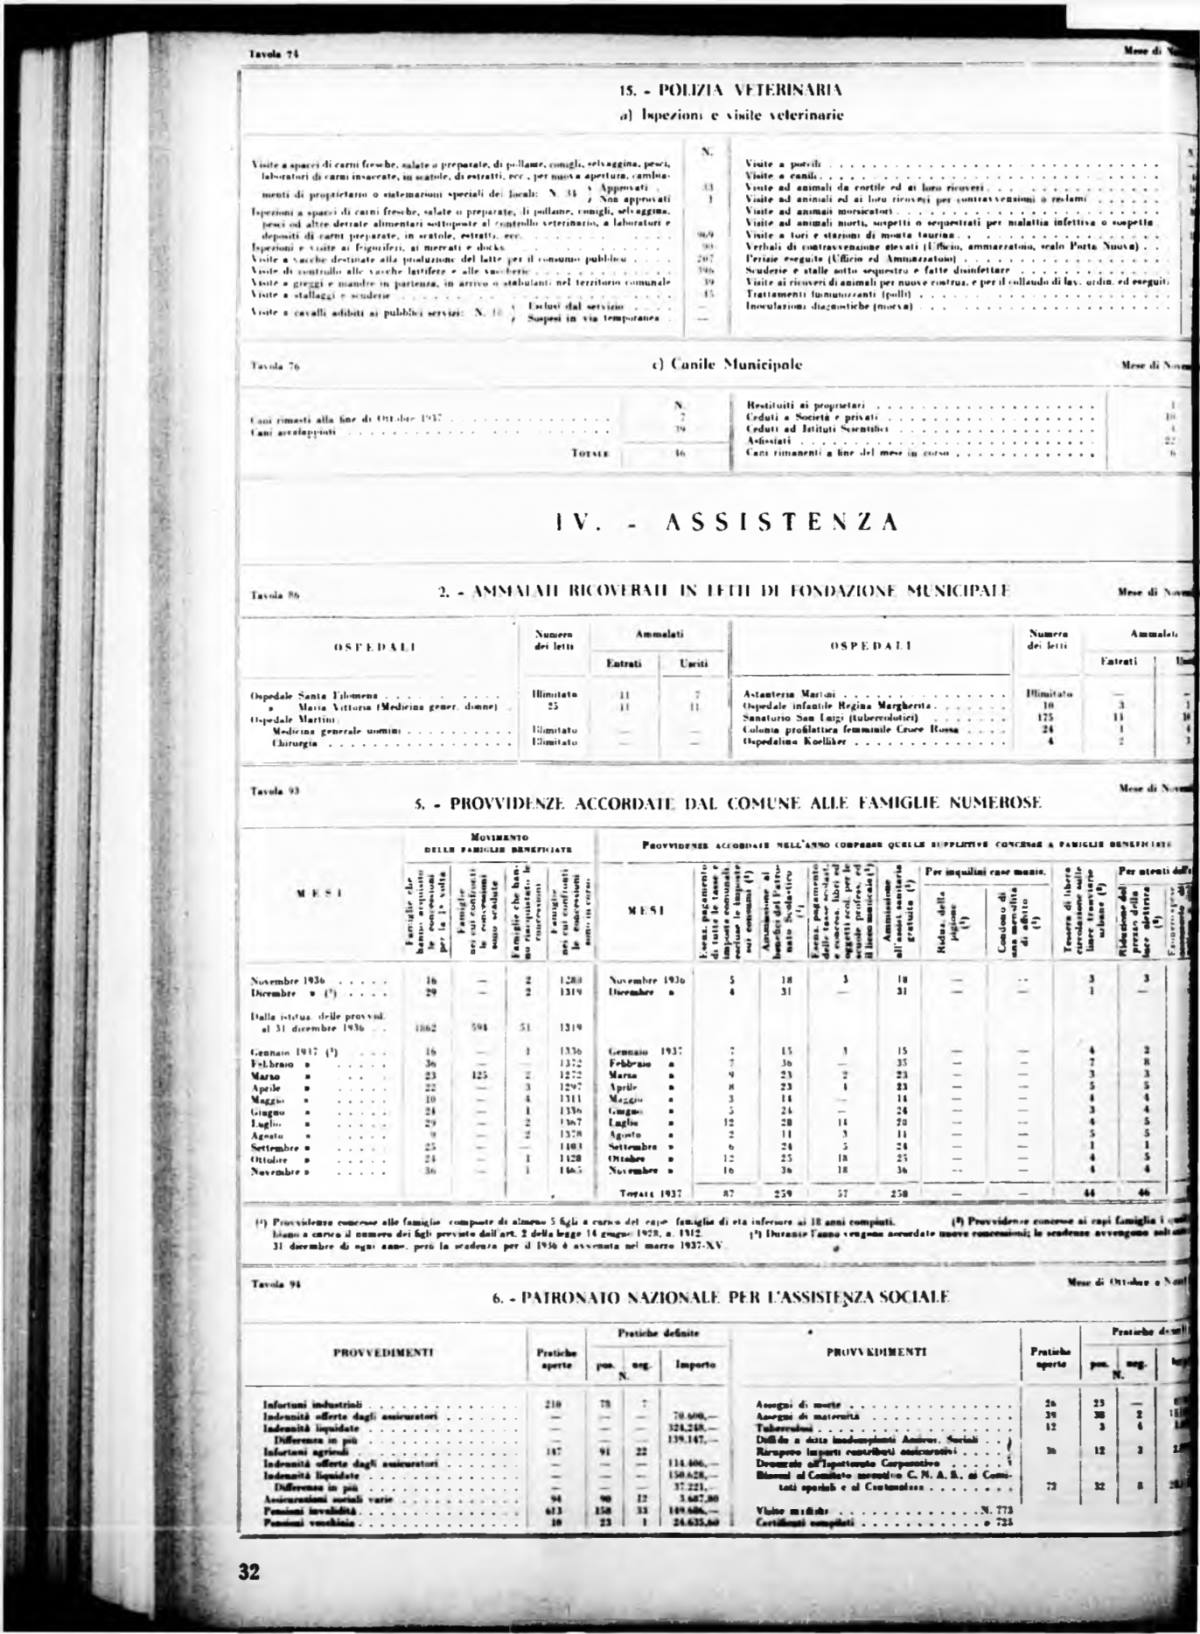 Tavola 74 Mese di
15. - POLIZIA VETERINARIA
a) Ispezioni e visite veterinarie
N.
Visite a spacci di carni fresche, salate o preparate, di pollame, conigli, selvaggina, pesci,
laboratori di carni insaccate, in scatole, di estratti, ecc., per nuova apertura, cambia-
menti di proprietario o sistemazioni speciali dei locali: N. 34 Approvati . 33
Non approvati 1
Ispezioni a spacci di carni fresche, salate o preparate, di pollame, conigli, selvaggina,
pesci od altre derrate alimentari sottoposte al controllo veterinario, a laboratori e
depositi di carni preparate, in scatole, estratti, ecc. 969
Ispezioni e visite ai frigoriferi, ai mercati e docks
Visite a vacche destinate alla produzione del latte per il consumo pubblico 207
Visite di controllo alle vacche lattifere e alle vaccherie 396
Visite a greggi e mandre in partenza, in arrivo o stabulanti nel territorio comunale 39
Visite a stallaggi e scuderie 45
Visite a cavalli adibiti ai pubblici servizi: N. Esclusi dal servizio —
Sospesi in via temporanea —
Visite a porcili
Visite a canili
Visite ad animali da cortile ed ai loro ricoveri
Visite ad animali ed ai loro ricoveri per contravvensioni o reclami
Visite ad animali morsicatori
Visite ad animali morti, sospetti o sequestrati per malattia infettiva o sospetta
Visite a tori e stazioni di monta taurina
Verbali di contravvenzione elevati (Ufficio, ammazzatoio, scalo Porta Nuova)
Perizie eseguite (Ufficio ed Ammazzatoio)
Scuderie e stalle sotto sequestro e fatte disinfettare
Visite ai ricoveri di animali per nuove costruz. e per il collaudo di lav. ordin. ed eseguiti
Trattamenti immunizzanti (polli)
Inoculazioni diagnostiche (morva)
Tavola 76 c) Canile Municipale Mese di
N.
Cani rimasti alla fine di Ottobre 1937 7
Cani accalappiati 39
TOTALE 46
Restituiti ai proprietari
Ceduti a Società e privati
Ceduti ad Istituti Scientifici
Asfissiati 22
Cani rimanenti a fine del mese in corso 6
IV. - ASSISTENZA
Tavola 86 2. - AMMALATI RICOVERATI IN LETTI DI FONDAZIONE MUNICIPALE Mese di
OSPEDALI Numero dei letti Ammalati Entrati Usciti
Ospedale Santa Filomena Illimitato 11 7
» Maria Vittoria (Medicina gener. donne) 25 11 11
Ospedale Martini
Medicina generale uomini Illimitato — —
Chirurgia Illimitato — —
OSPEDALI Numero dei letti Ammalati Entrati
Astanteria Martini Illimitato —
Ospedale infantile Regina Margherita 10 3
Sanatorio San Luigi (tubercolotici) 175 11
Colonia profilattica femminile Croce Rossa 24 1
Ospedalino Koelliker 4 2
Tavola 93 Mese di
5. - PROVVIDENZE ACCORDATE DAL COMUNE ALLE FAMIGLIE NUMEROSE
MOVIMENTO
DELLE FAMIGLIE BENEFICIATE
MESI
Famiglie che hanno acquisito le concessioni per la 1ª volta
Famiglie nei cui confronti le convenzioni sono scadute
Famiglie che hanno riacquistato le concessioni
Famiglie nei cui confronti le concessioni sono in corso
Novembre 1936 16 — 2 1288
Dicembre » (³) 29 — 2 1319
Dalla istituz. delle provvid.
al 31 dicembre 1936 1862 594 51 1319
Gennaio 1937 (³) 16 — 1 1336
Febbraio » 36 — — 1372
Marzo » 23 125 2 1272
Aprile » 22 — 3 1297
Maggio » 10 — 4 1311
Giugno » 24 — 1 1336
Luglio » 29 — 2 1367
Agosto » 9 — 2 1378
Settembre » 25 — — 1403
Ottobre » 24 — 1 1428
Novembre » 36 — 1 1465
PROVVIDENZE ACCORDATE NELL'ANNO COMPRESE QUELLE SUPPLETIVE CONCESSE A FAMIGLIE BENEFICIATE
MESI
Esenz. pagamento di tutte le tasse e imposte comunali, escluse le imposte sui consumi (²)
Ammissione ai benefici del Patronato Scolastico
Esenz. pagamento delle tasse scolast. e concess. libri ed oggetti scol. per le scuole profess. ed il liceo musicale (¹)
Ammissione all'assist. sanitaria gratuita (¹)
Per inquilini case munic.
Riduz. della pigione (¹)
Condono di una mensilità di affitto (¹)
Tessera di libera circolazione sulle linee tranviarie urbane (²)
Per utenti
Riduzione del prezzo della luce elettrica
Novembre 1936 5 18 3 18 — 3 3
Dicembre » 4 31 — 31 — — 1 —
Gennaio 1937 7 15 3 15 — — 4 2
Febbraio » 7 36 — 35 — — 7 8
Marzo » 9 23 2 23 — — 3 3
Aprile » 8 23 1 23 — — 5 5
Maggio » 3 14 — 14 — — 4 4
Giugno » 5 24 — 24 — — 3 4
Luglio » 12 28 14 28 — — 4 5
Agosto » 2 11 3 11 — — 5 5
Settembre » 6 24 5 24 — — 1 1
Ottobre » 12 25 18 25 — — 4 5
Novembre » 16 36 18 36 — — 4 4
TOTALE 1937 87 259 57 258 — — 44 46
(¹) Provvidenze concesse alle famiglie composte di almeno 5 figli a carico del capo famiglia di età inferiore ai 18 anni compiuti. (²) Provvidenze concesse ai capi famiglia i quali
biano a carico il numero dei figli previsto dall'art. 2 della legge 14 giugno 1928, n. 1312. (³) Durante l'anno vengono accordate nuove concessioni; le scadenze avvengono
31 dicembre di ogni anno, però la scadenza per il 1936 è avvenuta nel marzo 1937-XV.
Tavola 94 Mese di Ottobre e
6. - PATRONATO NAZIONALE PER L'ASSISTENZA SOCIALE
PROVVEDIMENTI Pratiche aperte Pratiche definite pos. neg. N. Importo
Infortuni industriali 210 78 7
Indennità offerte dagli assicuratori — — — 70.600,—
Indennità liquidate — — —
Differenza in più — — — 139.147,—
Infortuni agricoli 147 91 22
Indennità offerte dagli assicuratori — — — 114.406,—
Indennità liquidate — — — 150.628,—
Differenza in più — — — 37.221,—
Assicurazioni sociali varie 94 90 12
Pensioni invalidità 613 158 33
Pensioni vecchiaia 10 23 1
PROVVEDIMENTI Pratiche aperte pos. neg. N.
Assegni di morte 26 23 —
Assegni di maternità 39 38 2
Tubercolosi 12 3 4
Diffide a ditte inadempienti Assicur. Sociali
Ricupero importi contributi assicurativi 36 12 3
Denunzie all'Ispettorato Corporativo
Ricorsi al Comitato esecutivo C. N. A. S., ai Comi-
tati speciali e al Contenzioso 72 32 8
Visite mediche N. 773
Certificati compilati » 725
32